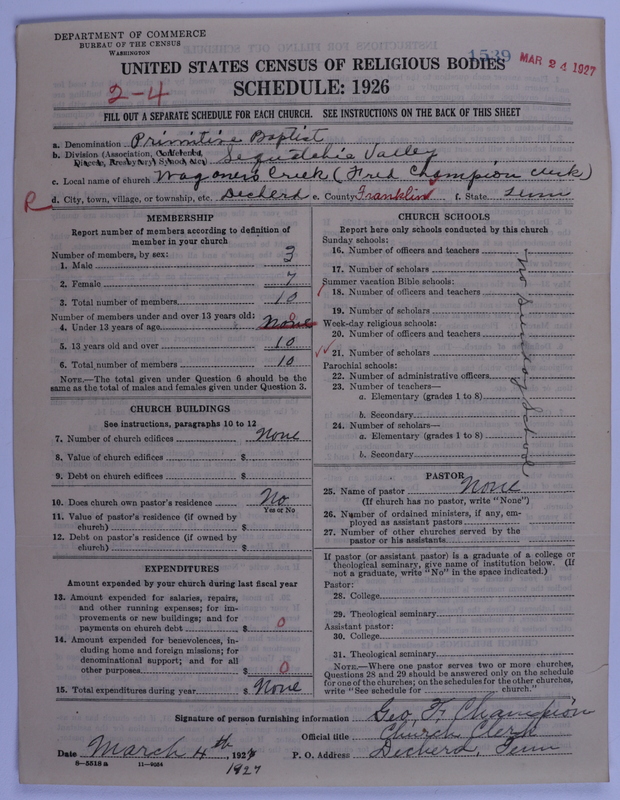 DEPARTMENT OF COMMERCE
BUREAU OF THE CENSUS
WASHINGTON
1539 MAR 24 1927
UNITED STATES CENSUS OF RELIGIOUS BODIES
2-4 SCHEDULE: 1926
FILL OUT A SEPARATE SCHEDULE FOR EACH CHURCH. SEE INSTRUCTIONS ON THE BACK OF THIS SHEET
a. Denomination Primitive Baptist
b. Division (Association, Conference, Diocese, Presbytery, Synod, etc.) Sequatchie Valley
c. Local name of church Wagoner's Creek (Fred Champion clerk)
R d. City, town, village, or township, etc. Decherd e. County Franklin f. State Tenn
MEMBERSHIP
Report number of members according to definition of
member in your church
Number of members, by sex:
1. Male 3
2. Female 7
3. Total number of members 10
Number of members under and over 13 years old:
4. Under 13 years of age None 0
5. 13 years old and over 10
6. Total number of members 10
NOTE.—The total given under Question 6 should be the
same as the total of males and females given under Question 3.
CHURCH BUILDINGS
See instructions, paragraphs 10 to 12
7. Number of church edifices None
8. Value of church edifices $
9. Debt on church edifices $
10. Does church own pastor's residence No
Yes or No
11. Value of pastor's residence (if owned by
church) $
12. Debt on pastor's residence (if owned by
church) $
EXPENDITURES
Amount expended by your church during last fiscal year
13. Amount expended for salaries, repairs,
and other running expenses; for im-
provements or new buildings; and for
payments on church debt $ 0
14. Amount expended for benevolences, in-
cluding home and foreign missions; for
denominational support; and for all
other purposes $ 0
15. Total expenditures during year $ None
CHURCH SCHOOLS
Report here only schools conducted by this church
Sunday schools:
16. Number of officers and teachers
17. Number of scholars
Summer vacation Bible schools:
18. Number of officers and teachers
19. Number of scholars
Week-day religious schools:
20. Number of officers and teachers
21. Number of scholars
Parochial schools:
22. Number of administrative officers
23. Number of teachers—
a. Elementary (grades 1 to 8)
b. Secondary
24. Number of scholars—
a. Elementary (grades 1 to 8)
b. Secondary
No Sunday School
PASTOR
25. Name of pastor None
(If church has no pastor, write "None")
26. Number of ordained ministers, if any, em-
ployed as assistant pastors
27. Number of other churches served by the
pastor or his assistants
If pastor (or assistant pastor) is a graduate of a college or
theological seminary, give name of institution below. (If
not a graduate, write "No" in the space indicated.)
Pastor:
28. College
29. Theological seminary
Assistant pastor:
30. College
31. Theological seminary
NOTE.—Where one pastor serves two or more churches,
Questions 28 and 29 should be answered only on the schedule
for one of the churches; on the schedules for the other churches,
write "See schedule for church."
Signature of person furnishing information Geo. F. Champion
Official title Church Clerk
Date March 4th, 192 P. O. Address Decherd, Tenn
8-5518a 11-9054 1927